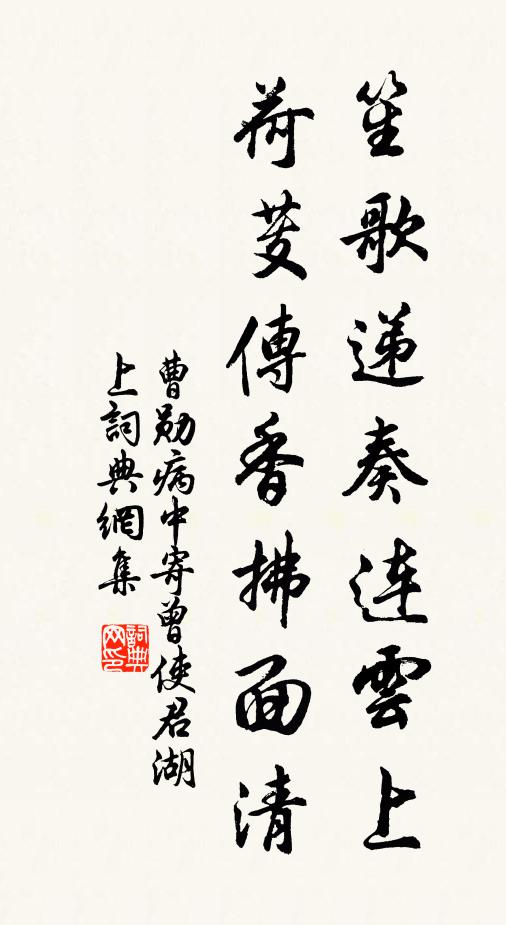 笙歌递奏连雲上
荷芰傳香拂面清
曹勋病中寄曾使君湖
上詞典網集
詞典网印